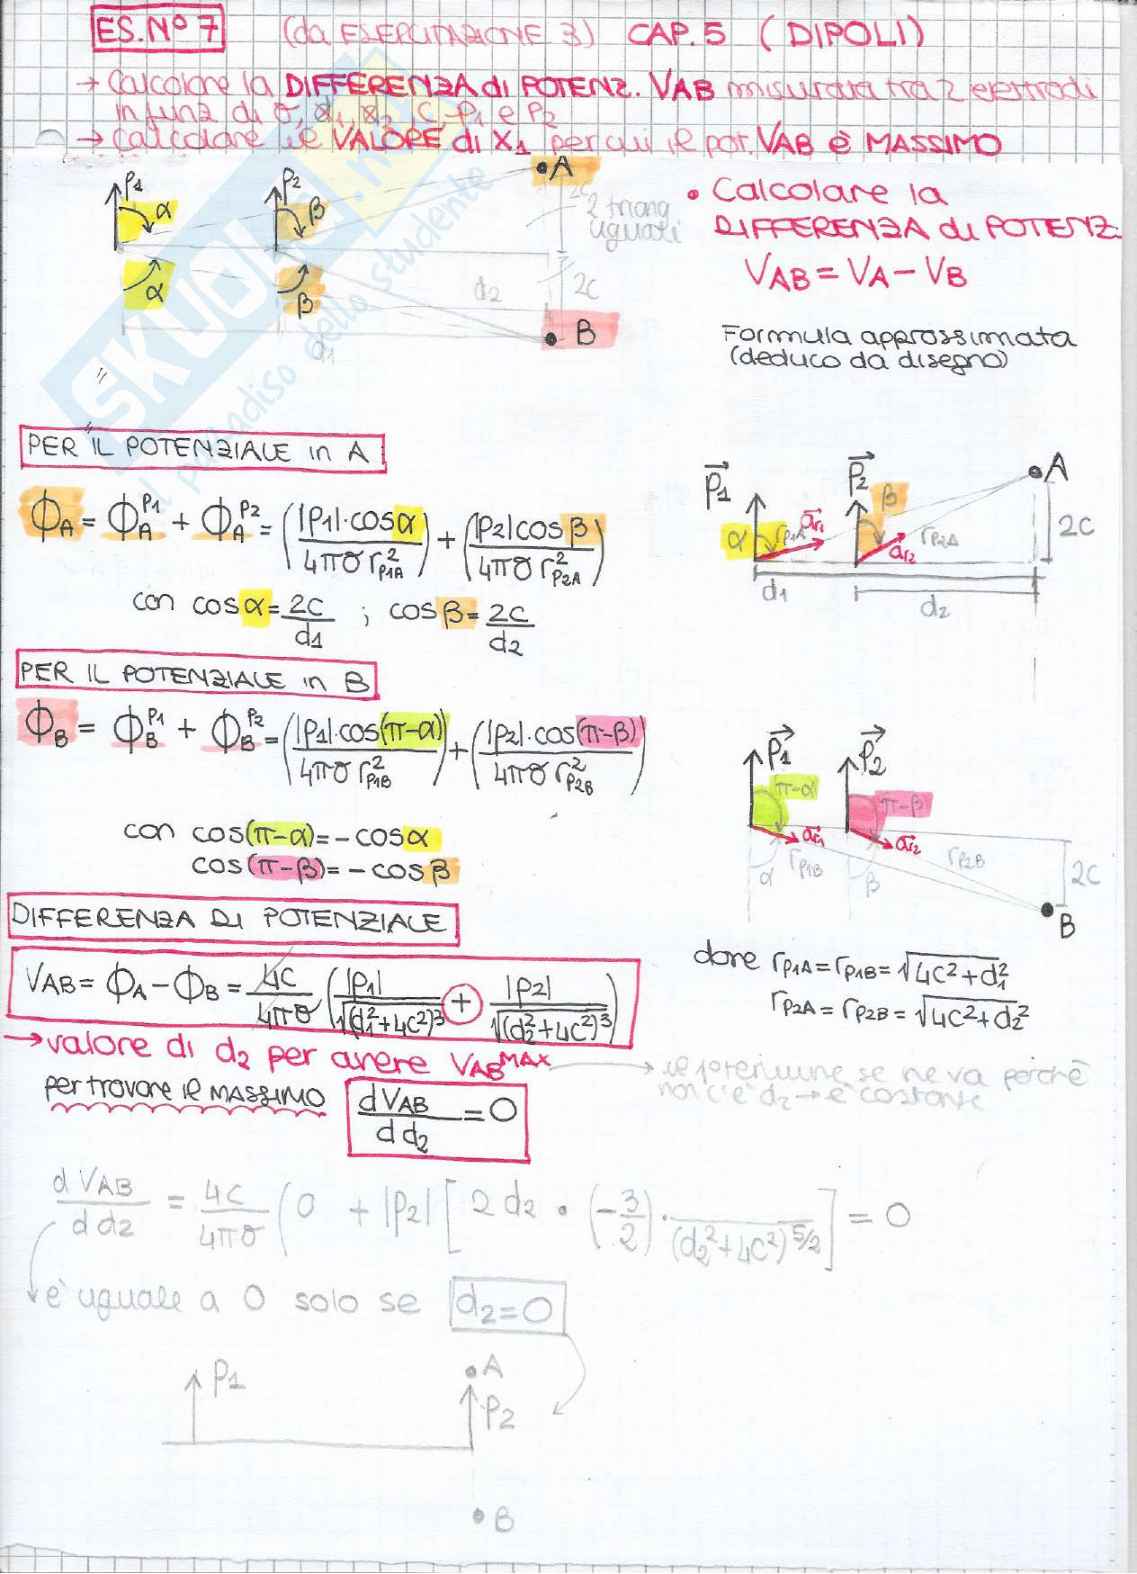 ES. Nº 7 (da ESERCITAZIONE 3) CAP. 5 (DIPOLI)
→ Calcolare la DIFFERENZA di POTENZ. VAB misurata tra 2 elettrodi
in funz di σ, d1, x2, C, p1 e p2
→ Calcolare il VALORE di x1 per cui il pot. VAB è MASSIMO
P1 α P2 β A
2C
2 triang
uguali
α β d2 2C
B
d1
• Calcolare la
DIFFERENZA di POTENZ.
VAB = VA - VB
Formula approssimata
(deduco da disegno)
SKUOLA.net
il paradiso dello studente
PER IL POTENZIALE in A
ΦA = ΦA^P1 + ΦA^P2 = (|P1|·cosα / 4πσ r²P1A) + (|P2|cosβ / 4πσ r²P2A)
con cosα = 2C/d1 ; cosβ = 2C/d2
P1 P2 β A
α rP1A ar1 ar2 rP2A 2C
d1 d2
PER IL POTENZIALE in B
ΦB = ΦB^P1 + ΦB^P2 = (|P1|·cos(π-α) / 4πσ r²P1B) + (|P2|·cos(π-β) / 4πσ r²P2B)
con cos(π-α) = -cosα
cos(π-β) = -cosβ
P1 P2
π-α π-β
ar1 ar2
α rP1B β rP2B 2C
B
DIFFERENZA DI POTENZIALE
VAB = ΦA - ΦB = 4C/4πσ (|P1| / √(d1²+4C²)³ + |P2| / √(d2²+4C²)³)
dove rP1A = rP1B = √4C²+d1²
rP2A = rP2B = √4C²+d2²
→ valore di d2 per avere VAB^MAX
→ il 1º termine se ne va perchè
non c'è d2 → è costante
per trovare il MASSIMO dVAB/dd2 = 0
dVAB/dd2 = 4C/4πσ (0 + |P2| [2d2 · (-3/2) · /(d2²+4C²)^5/2] = 0
è uguale a 0 solo se d2=0
P1 A
P2
B